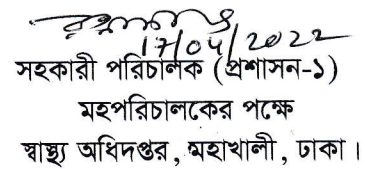 17/04/2022
সহকারী পরিচালক (প্রশাসন-১)
মহপরিচালকের পক্ষে
স্বাস্থ্য অধিদপ্তর, মহাখালী, ঢাকা।